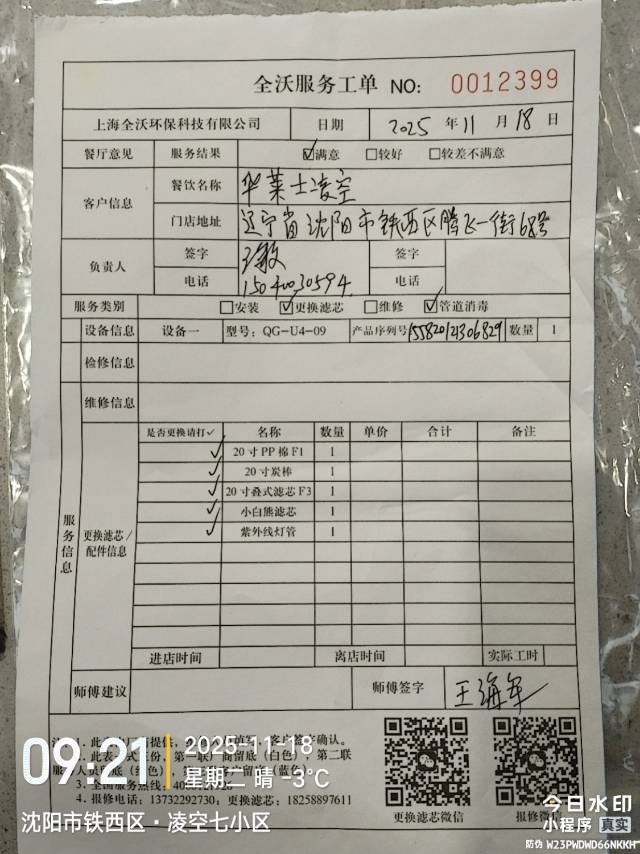 全沃服务工单 NO: 0012399
上海全沃环保科技有限公司 日期 2025 年 11 月 18 日
餐厅意见 服务结果 ☑满意 □较好 □较差不满意
客户信息 餐饮名称 华莱士凌空
门店地址 辽宁省沈阳市铁西区腾飞一街68号
负责人 签字 签字
电话 15040030594 电话
服务类别 □安装 ☑更换滤芯 □维修 ☑管道消毒
设备信息 设备一 型号: QG-U4-09 产品序列号 数量 1
检修信息
维修信息
服务信息 更换滤芯/配件信息
是否更换请打✓ 名称 数量 单价 合计 备注
✓ 20寸PP棉F1 1
✓ 20寸炭棒 1
✓ 20寸叠式滤芯F3 1
✓ 小白熊滤芯 1
✓ 紫外线灯管 1
进店时间 离店时间 实际工时
师傅建议 师傅签字 王海军
4. 报修电话: 13732292730; 更换滤芯: 18258897611
更换滤芯微信 报修微
09:21 2025-11-18
星期二 晴 -3℃
沈阳市铁西区·凌空七小区
今日水印
小程序 真实
防伪 W23PWDWD66NKKH